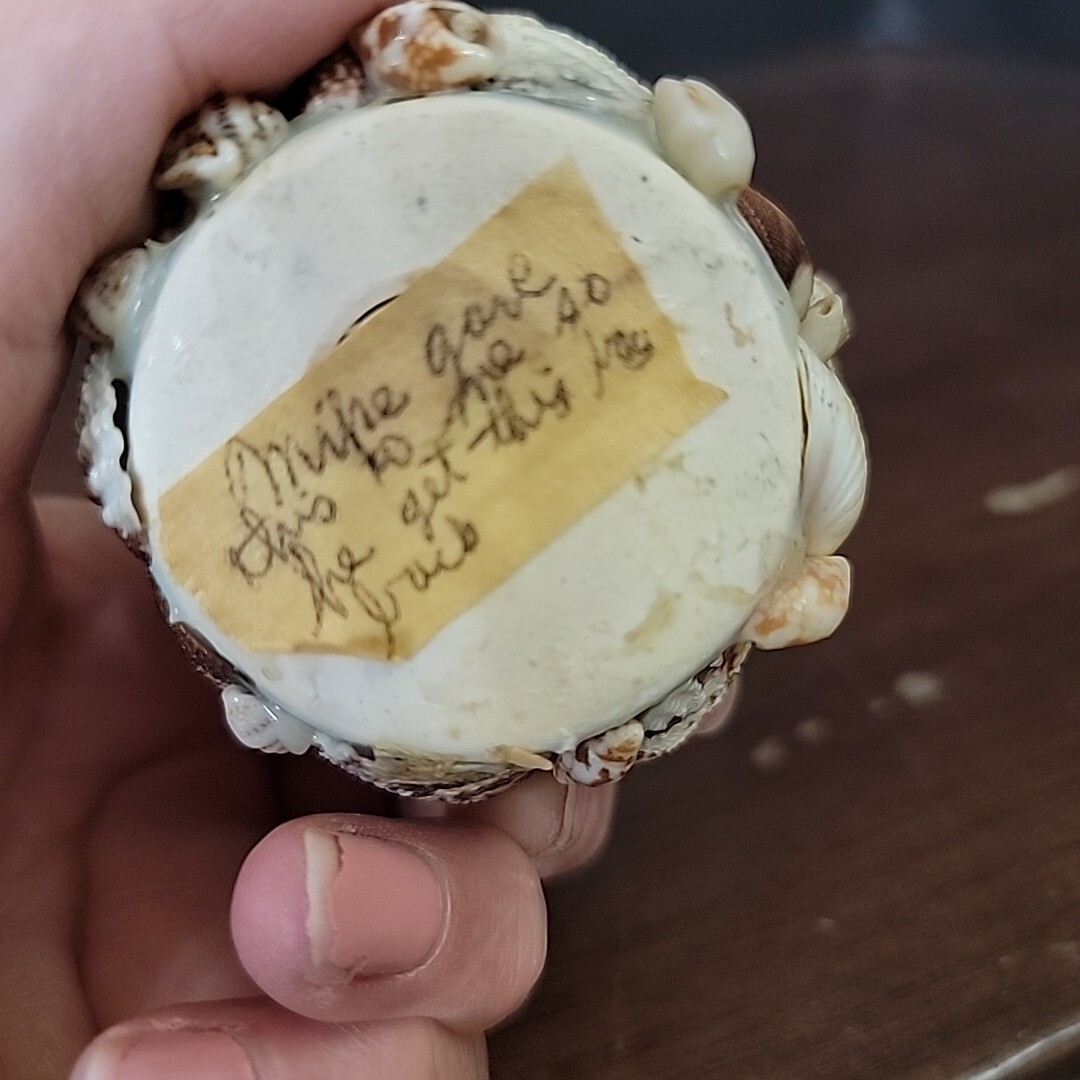 Mike gave
this to me so
he get this
back